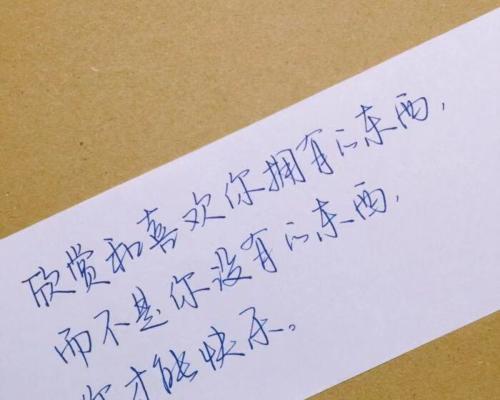 欣赏和喜欢你拥有的东西，
而不是你没有的东西，
你才能快乐。